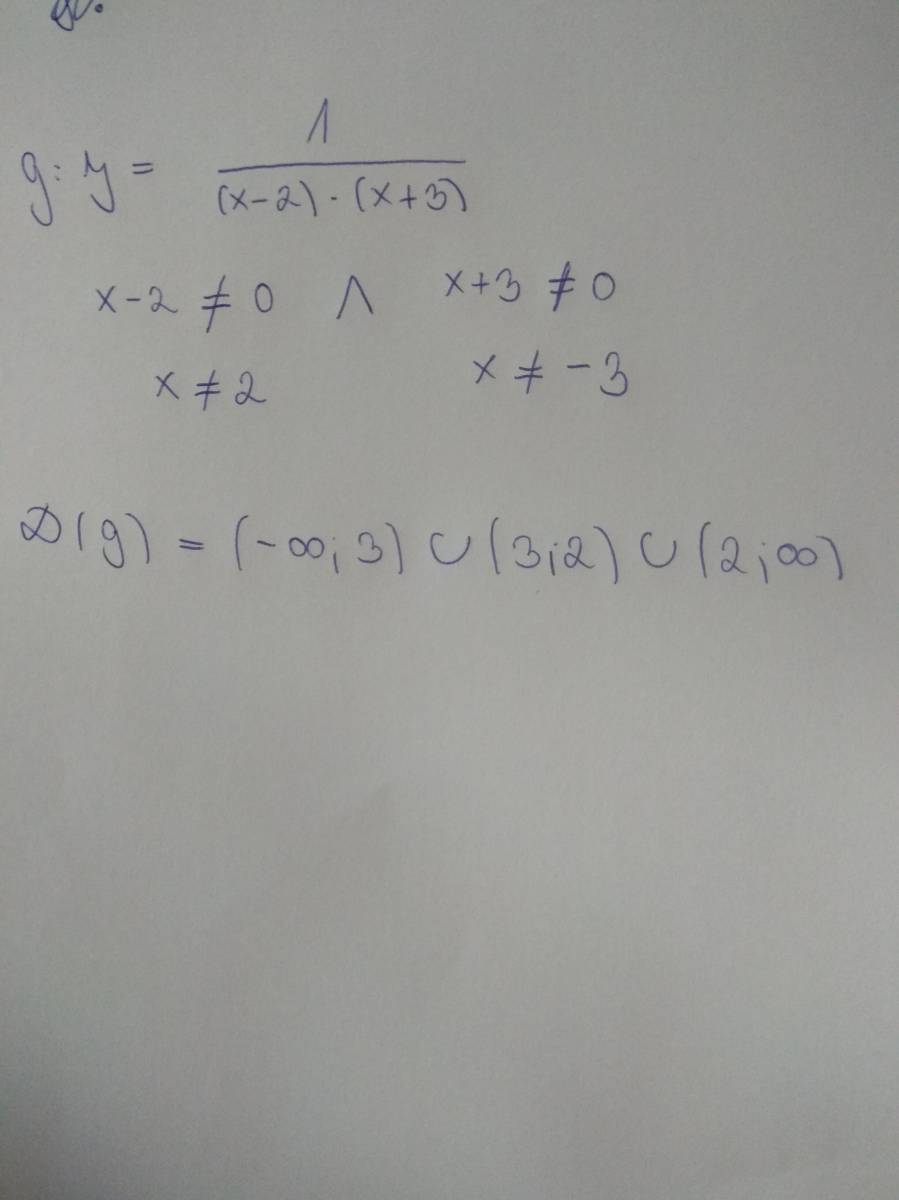 g: y = 1 / (x-2) · (x+3)
x-2 ≠ 0 ∧ x+3 ≠ 0
x ≠ 2 x ≠ -3
D(g) = (-∞; 3) ∪ (3; 2) ∪ (2; ∞)